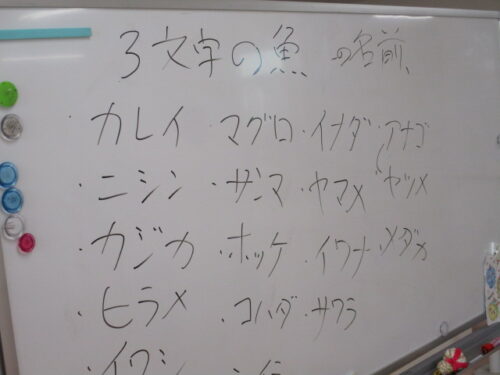 3文字の魚の名前
・カレイ ・マグロ ・イナダ ・アナゴ
・ニシン ・サンマ ・ヤマメ ・ヤツメ
・カジカ ・ホッケ ・イワナ ・メダカ
・ヒラメ ・コハダ ・サワラ
・イワシ